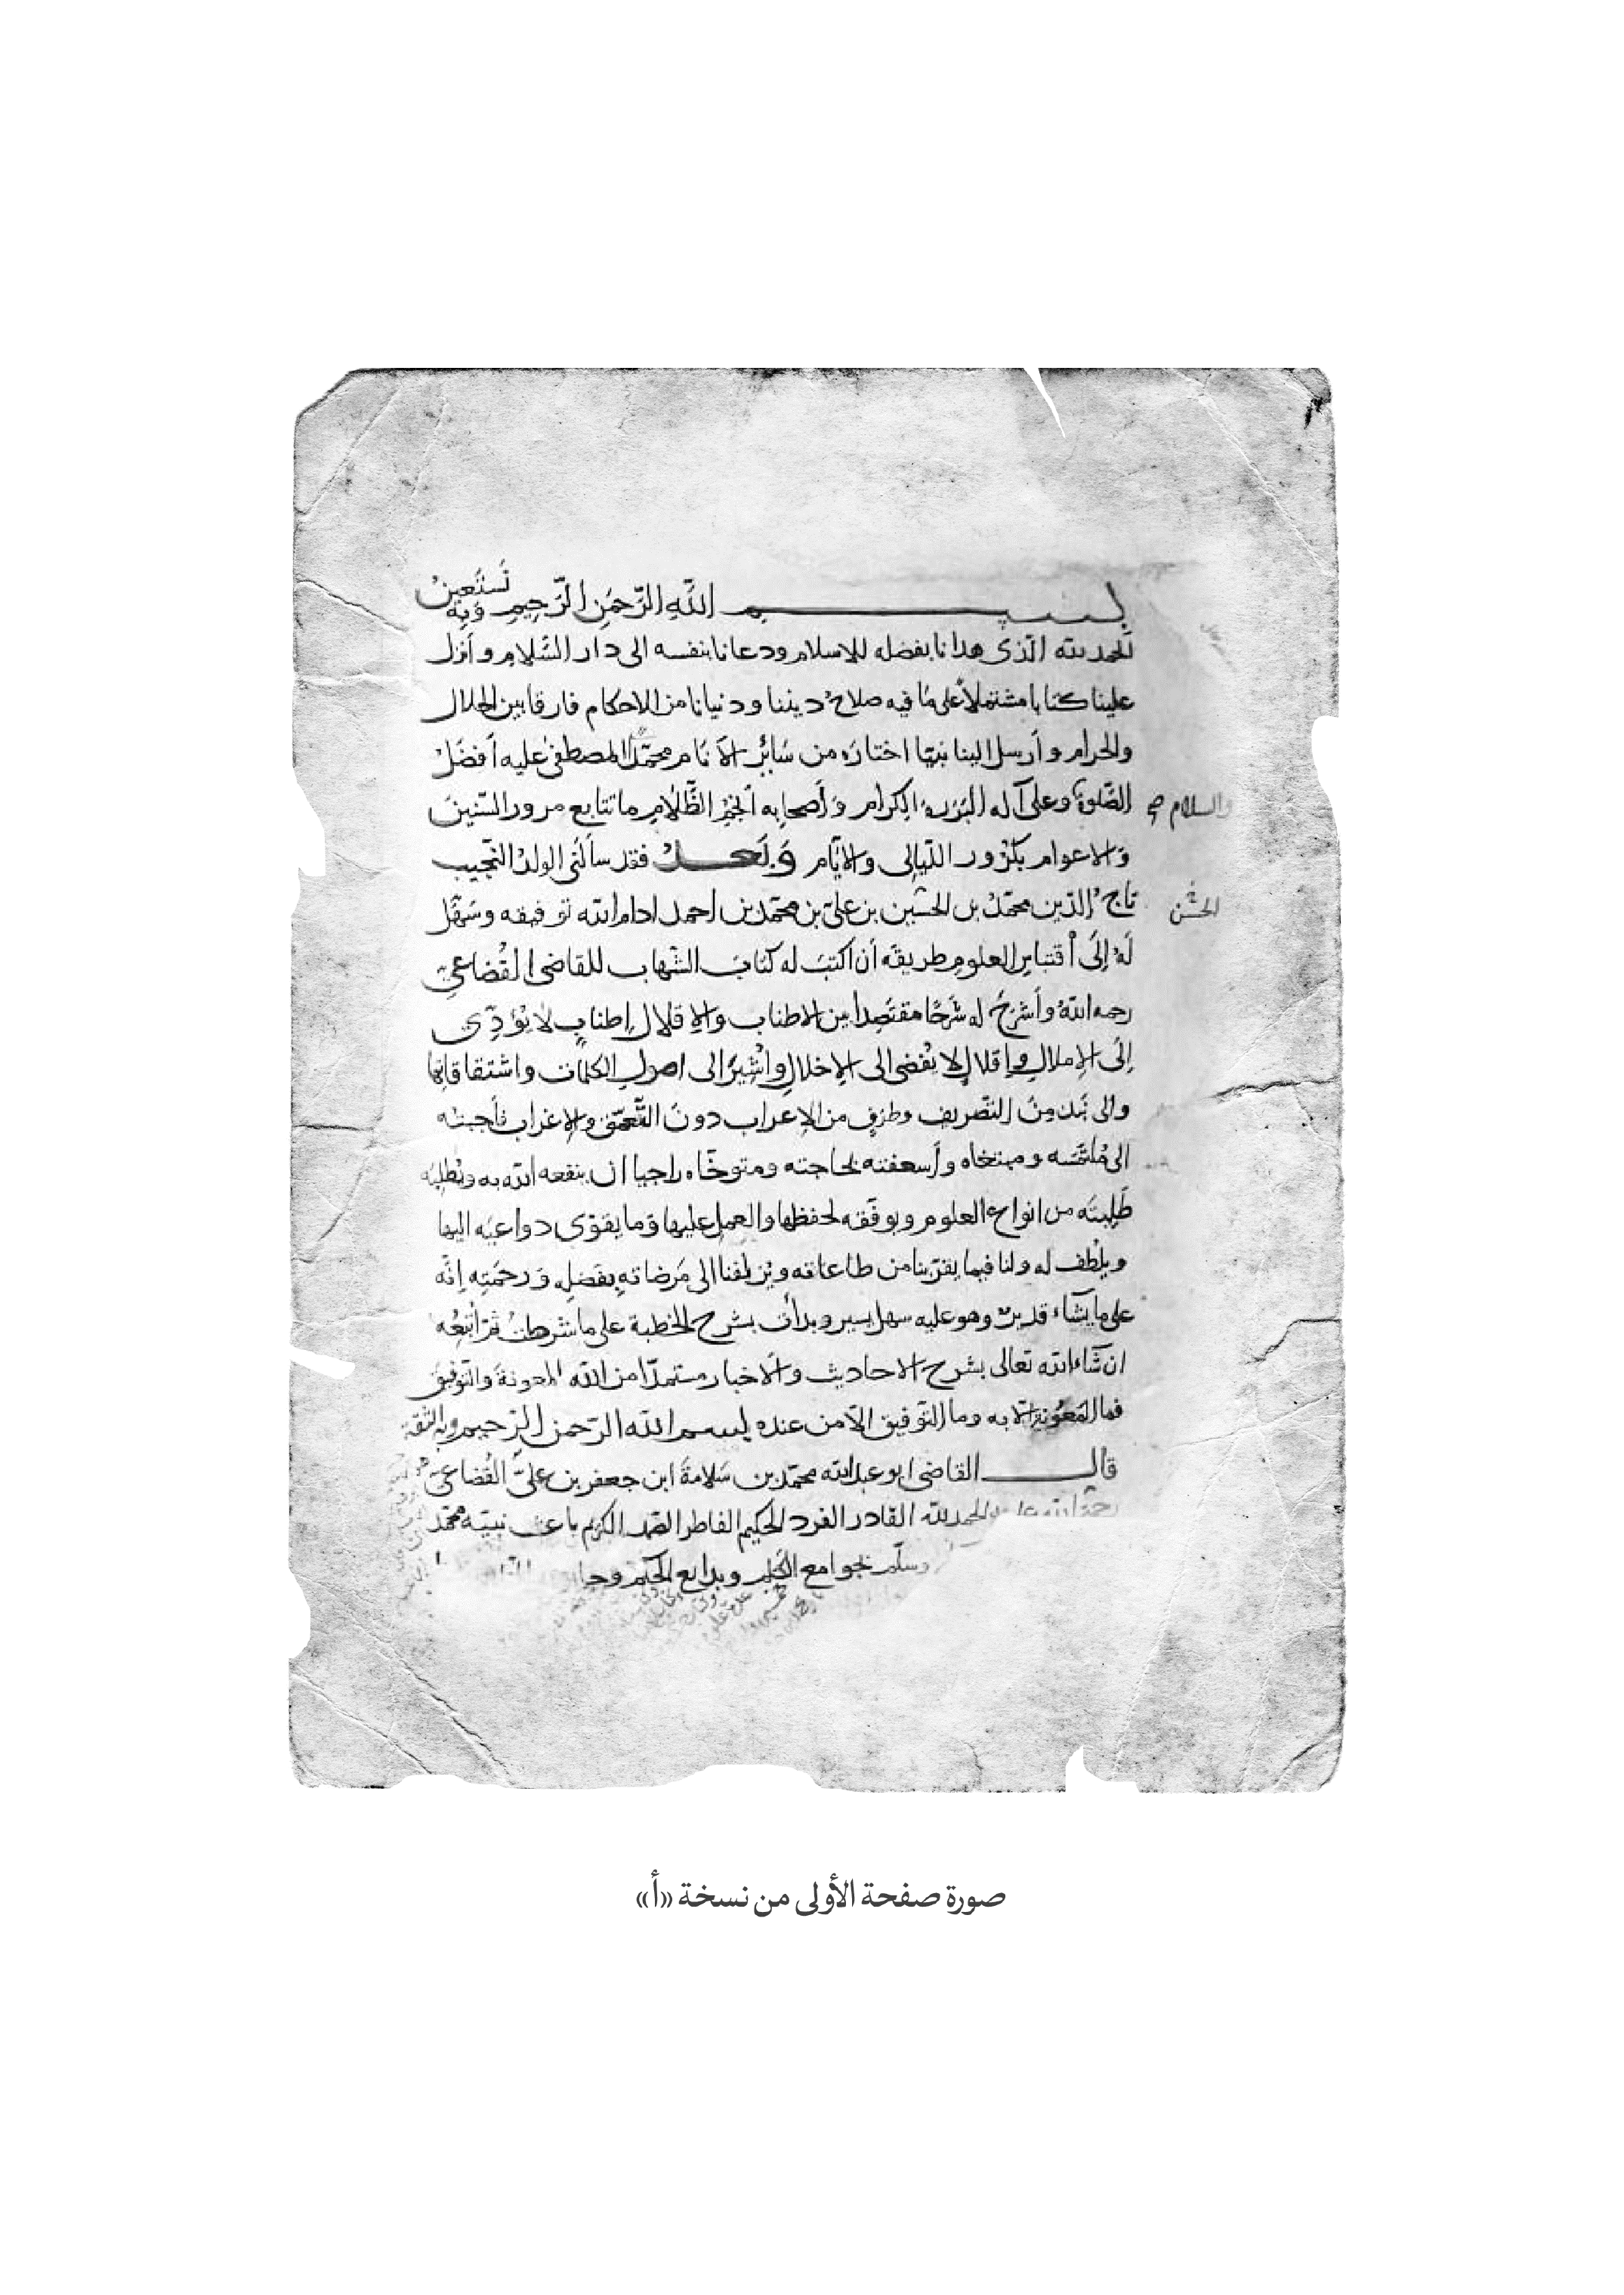 بسم الله الرَّحمَنِ الرَّحِيمِ وَبِهِ نَسْتَعِينُ
الحمد لله الذى هدانا بفضله للاسلام ودعانا بنفسه الى دار السَّلام و أنزل
علينا كتابا مشتملاً على مَا فيه صلاحُ ديننا و دنيانا من الاحكام فارقا بين الحلال
والحرام و أرسل الينا نبيّا اختارَه من سَائِرِ الأَنَام محمّد المصطفى عليه أفضَلُ
الصَّلوة وعلى آله البَرَرة الكرام وَ أَصحابه أنجُمِ الظَّلامِ ما تتابع مرور السّنينَ
والسلام صح
وَالاعوام بكرُور اللّيالى والايّام وَبَعدُ فقد سألنى الولدُ النّجيب
تاجُ الدّين محمّدُ بن الحسَين بن علىّ بن محمّد بن احمد ادام الله توفيقه وسَهّل
الحسن
لَهُ إِلَى اقتباسِ العلومِ طريقَه أن اكتبَ له كتابَ الشّهاب للقاضى القُضاعىِّ
رحمه الله وأَشرَحَ له شَرحًا مقتَصِدا بين الاطناب والإقلال إطنابٍ لا يُؤدِّى
إلَى الإملالِ وإقلالٍ لا يُفضى الى الإخلالِ وأُشِيرَ الى اصول الكلمات واشتقاقاتها
والى نُبَذٍ مِنَ التّصريف وطرَفٍ من الإعراب دونَ التَّعمّق والإغراب فأجبته
الى مُلتَمَسه ومبتغاه وأسعفته بحاجته ومتوخّاه راجيا ان ينفعه الله به
طَلِبتَه من انواع العلوم ويوفّقه لحفظها والعمل عليها وَما يقوّى دواعيَه اليها
ويلطف له ولنا فيما يقرّبنا من طاعاته ويزلفنا الى مَرضاتهِ بِفَضلِه وَرحمَتِه إنَّه
على ما يشَآء قديرٌ وهو عليه سهل يسير وبدأتُ بشرح الخطبة على ما شرطتُ ثمّ أتبِعُه
ان شآء الله تعالى بشرح الاحاديث والأخبار مستمدّا من الله المعونةَ والتّوفيقَ
فما المَعُونة إلّا به وما التّوفيق إلّا من عنده بسم الله الرّحمن الرّحيم وبه الثّقة
قال القاضى ابو عبد الله محمّد بن سَلامةَ ابن جعفر بن علىِّ القُضاعىّ
رحمة الله عليه الحمد لله القادر الفرد الحكيم الفاطر الصّمد الكريم باعث نبيّه محمّد
وسلّم بجوامع الكَلِم وبدايع الحِكَم
صورة صفحة الأولى من نسخة «أ»